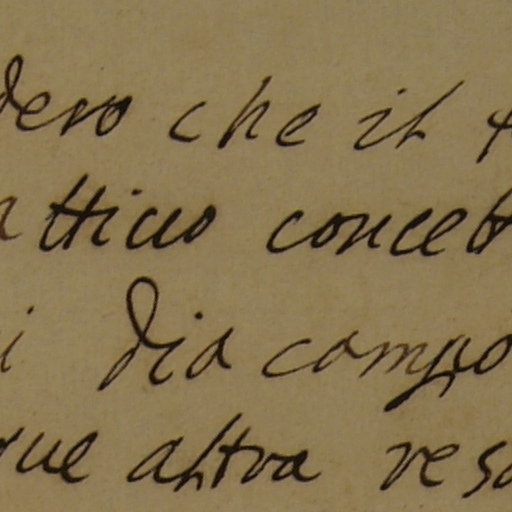 dero che il
attivo concet
i dia campo
que altra reso